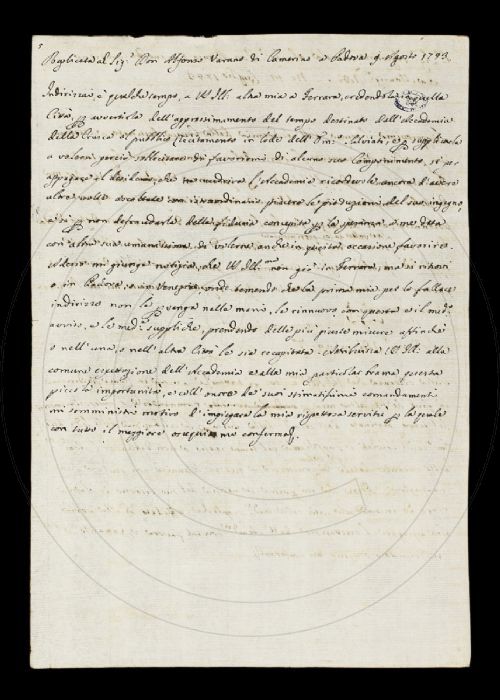 5
Replicata al Sig.r Don Alfonso Varano di Camerino a Padova 9. Agosto 1793.
Indirizzai è qualche tempo, a V.S. Ill. altra mia a Ferrara, credendola in quella
Città, p avvertirla dell'approssimamento del tempo destinato dall'Accademia
della Crusca al pubblico Recitamento in lode dell' Salviati, e p supplicarla
a volere perciò sollecitare di favorirmi di alcun suo Componimento, sì per
appagare il desiderio, che ne nudrire l'Accademia ricordevole ancora d'avere
altra volta ascoltate con istraordinario piacere le produzioni del suo ingegno,
sì p non defraudarla della fiducia concepita p la parola a me data
con altra sua umanissima di volerne, anche in questa occasione favorire.
Adesso mi giunge notizia, che V.S. Ill.ma non già in Ferrara, ma si ritrovi
o in Padova, o in Venezia, onde temendo che la prima mia per lo fallace
indirizzo non le pvenga nelle mani, le rinnuovo con questa e il med.o
avviso, e le med.e suppliche, prendendo delle più giuste misure affinché
o nell'una, o nell'altra Città le sia recapitata. V.S. Ill. alla
comune espettazione dell'Accademia e alla mia particolar brama questa
piccola importunità, e coll'onore de' suoi stimatissimi comandamenti
mi somministri motivo d'impiegare la mia rispettosa servitù p la quale
con tutto il maggiore ossequio mi confermo